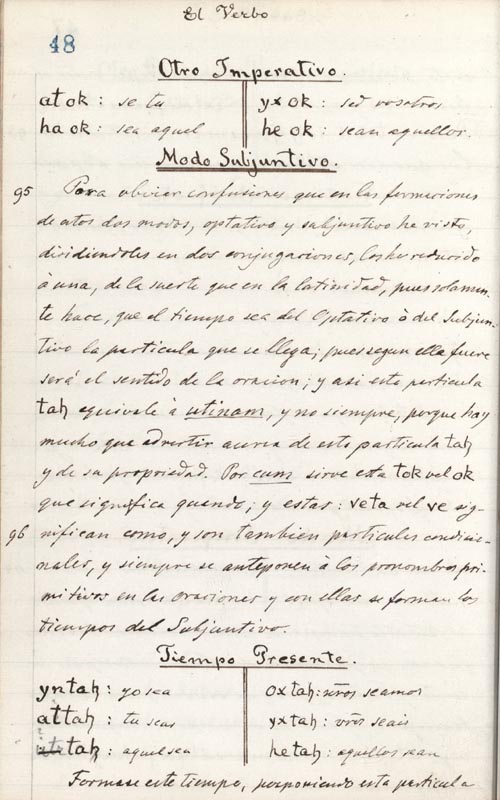 El Verbo
48
Otro Imperativo.
at ok : se tu
yx ok : sed vosotros
ha ok : sea aquel
he ok : sean aquellos.
Modo Subjuntivo.
95 Para obviar confusiones que en las formaciones
de estos dos modos, optativo y subjuntivo he visto,
dividiendoles en dos conjugaciones, los he reducido
à una, de la suerte que en la latinidad, pues solamen-
te hace, que el tiempo sea del Optativo ò del Subjun-
tivo la particula que se llega; pues segun ella fuere
será el sentido de la oracion; y asi esta particula
tah equivale à utinam, y no siempre, porque hay
mucho que advertir acerca de esta particula tah
y de su propriedad. Por cum sirve esta tok vel ok
que significa quando; y estas: veta vel ve sig-
96 nifican como, y son tambien particulas condicio-
nales, y siempre se anteponen à los pronombres pri-
mitivos en las oraciones y con ellas se forman los
tiempos del Subjuntivo.
Tiempo Presente.
yntah : yo sea
oxtah : nros seamos
attah : tu seas
yxtah : vros seais
tah : aquel sea
hetah : aquellos sean
Formase este tiempo, posponiendo esta particula